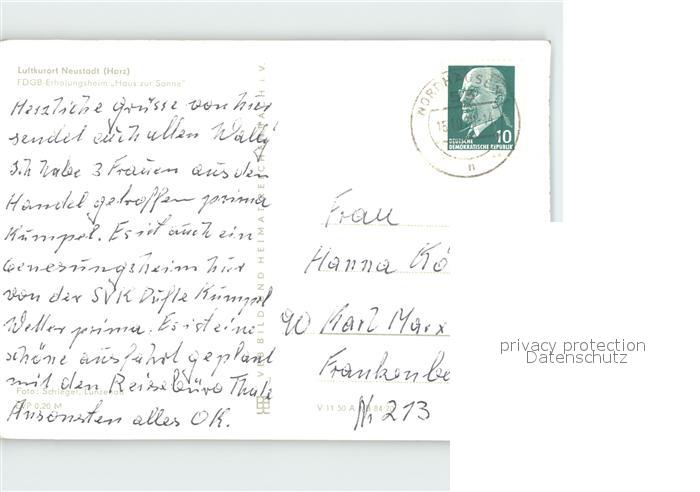 Luftkurort Neustadt (Harz)
FDGB-Erholungsheim „Haus zur Sonne"
Herzliche grüsse von hier
sendet euch allen Wally
Ich habe 3 Frauen aus den
Handel getroffen prima
Kumpel. Es ist auch ein
Genesungsheim hier
von der SVK Dufte Kumpel
Wetter prima. Es ist eine
schöne ausfahrt geplant
mit den Reisebüro Thale
Ansonsten alles OK.
Foto: Schlegel,
0,20 M
VEB BILD UND HEIMAT REICHENBACH I. V.
V 11 50 A
NORDHAUSEN
n
10
DEUTSCHE
DEMOKRATISCHE REPUBLIK
Frau
Hanna Kö
90 Karl Marx
Frankenbe
Nr 213
privacy protection
Datenschutz